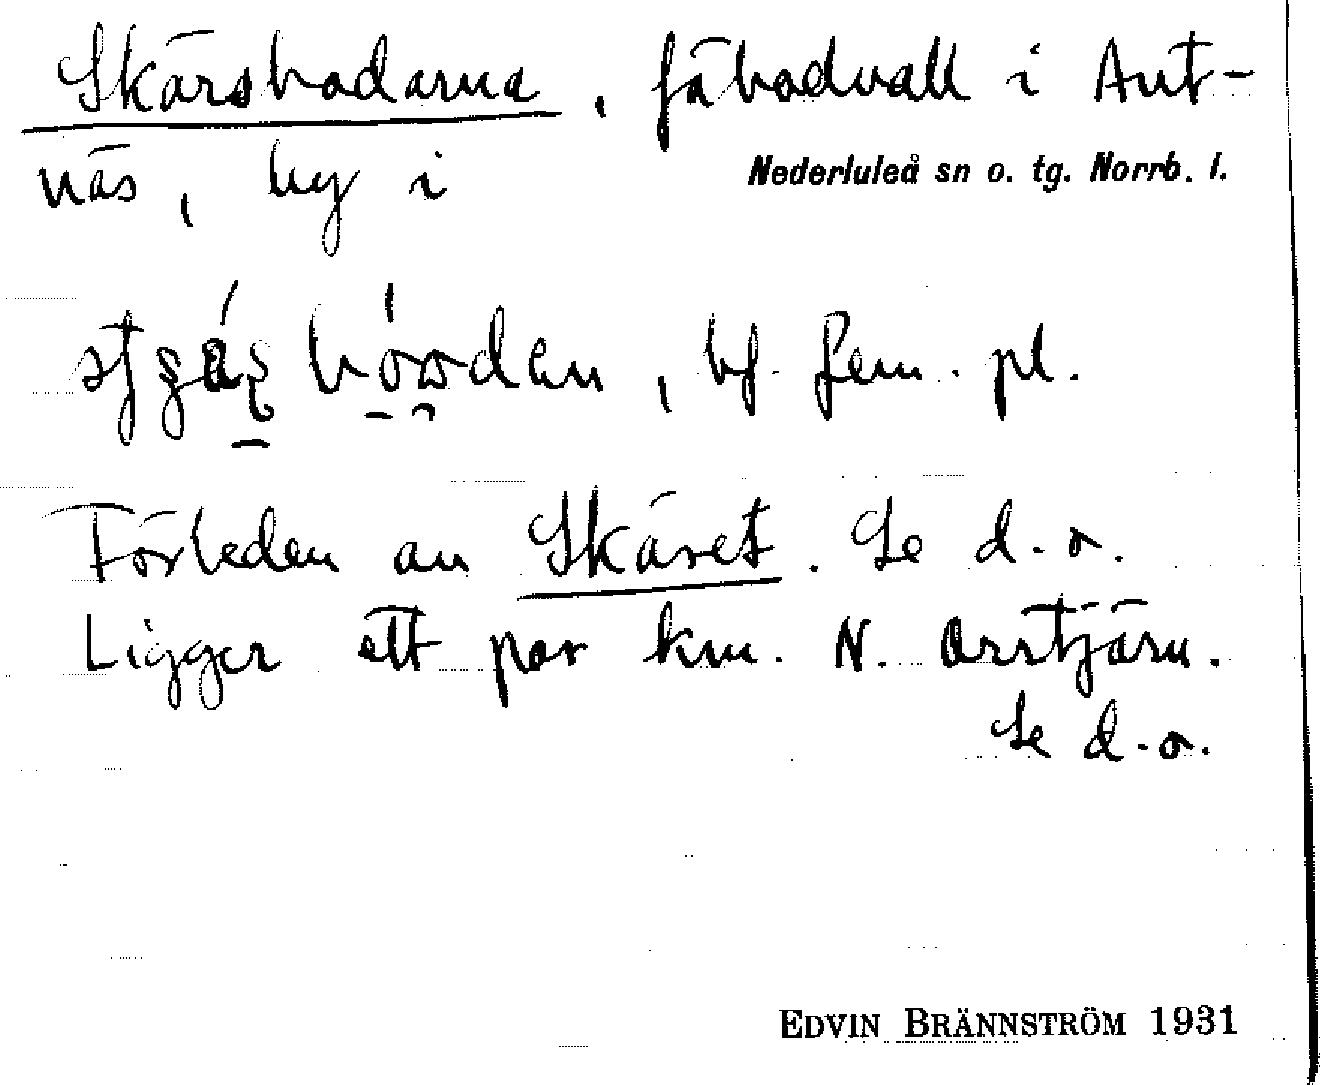 Skärsbodarna, fäbodvall i Ant-
näs, by i Nederluleå sn o. tg. Norrb. l.
bf. fem. pl.
Förleden av Skäret. Se d. o.
Ligger ett par km. N. Orrtjärn.
Se d. o.
EDVIN BRÄNNSTRÖM 1931